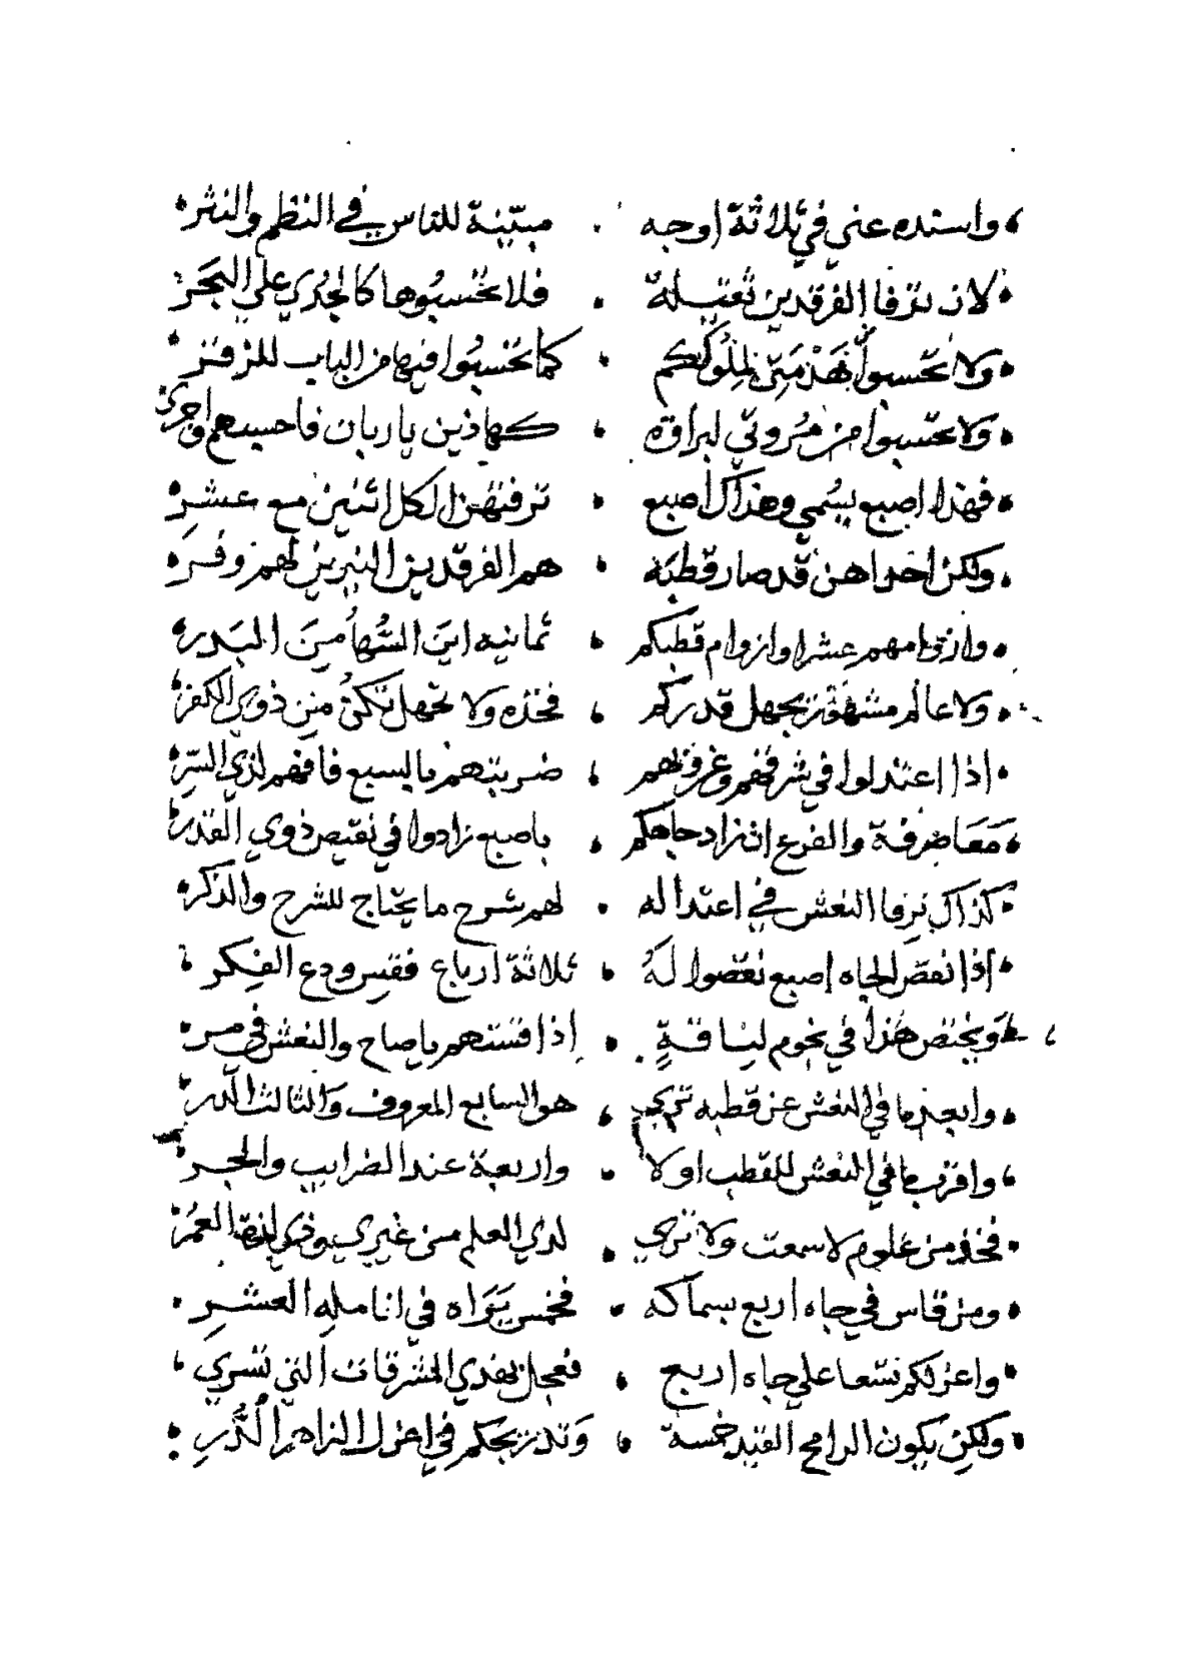 واسنده عني في ثلاثة اوجه مبيّنة للناس في النظم والنثر
لان ترفا الفرقدين ثقيلة فلا تحسبوها كالجدي علي البحر
ولا تحسبوا كما تحسبوا فيها من الباب للزفر
ولا تحسبوا من كهاذين يا ربان فاحسبهم واجري
فهذا اصبع يسمي وهذاك اصبع ترفتهن لكل اثنين مع عشر
ولكن احداهن قد صار قطبة هم الفرقدين النيرين لهم وفر
عشرا وازوام قطبكم ثمانيه اين السها من البدر
ولا عالم يجهل قدركم فخذه ولا تجهل تكن من ذوي الكفر
اذا اعتدلوا في شرقهم وغرفهم ضربتهم بالسبع فافهم لذي السر
والفرع ان زاد جاهكم باصبع زادوا في نقيص ذوي القدر
كذاك ترفا النعش في اعتداله لهم شرح ما يحتاج للشرح والذكر
اذا نقص الجاه اصبع نقصوا له ثلاثة ارباع فقيس ودع الفكر
ويختص هذا في نجوم لياقة إذا قستهم يا صاح والنعش في مر
وابعد ما في النعش عن قطبه تري هو السابع المعروف والثالث
واقرب ما في النعش للقطب اولا واربعة عند الضرايب والحجر
فخذ من علوم لا سمعت ولا تري لدي العلم من غيري وذي العمر
ومن قاس في جاه اربع بسماكه فخمس يراه في انامله العشر
واعزلكم تسعا علي جاه اربع فعجل بهدي المشرقات التي تسري
ولكن يكون الرامح القيد خمسة وتدريجكم في اعزل الزاهر الدر